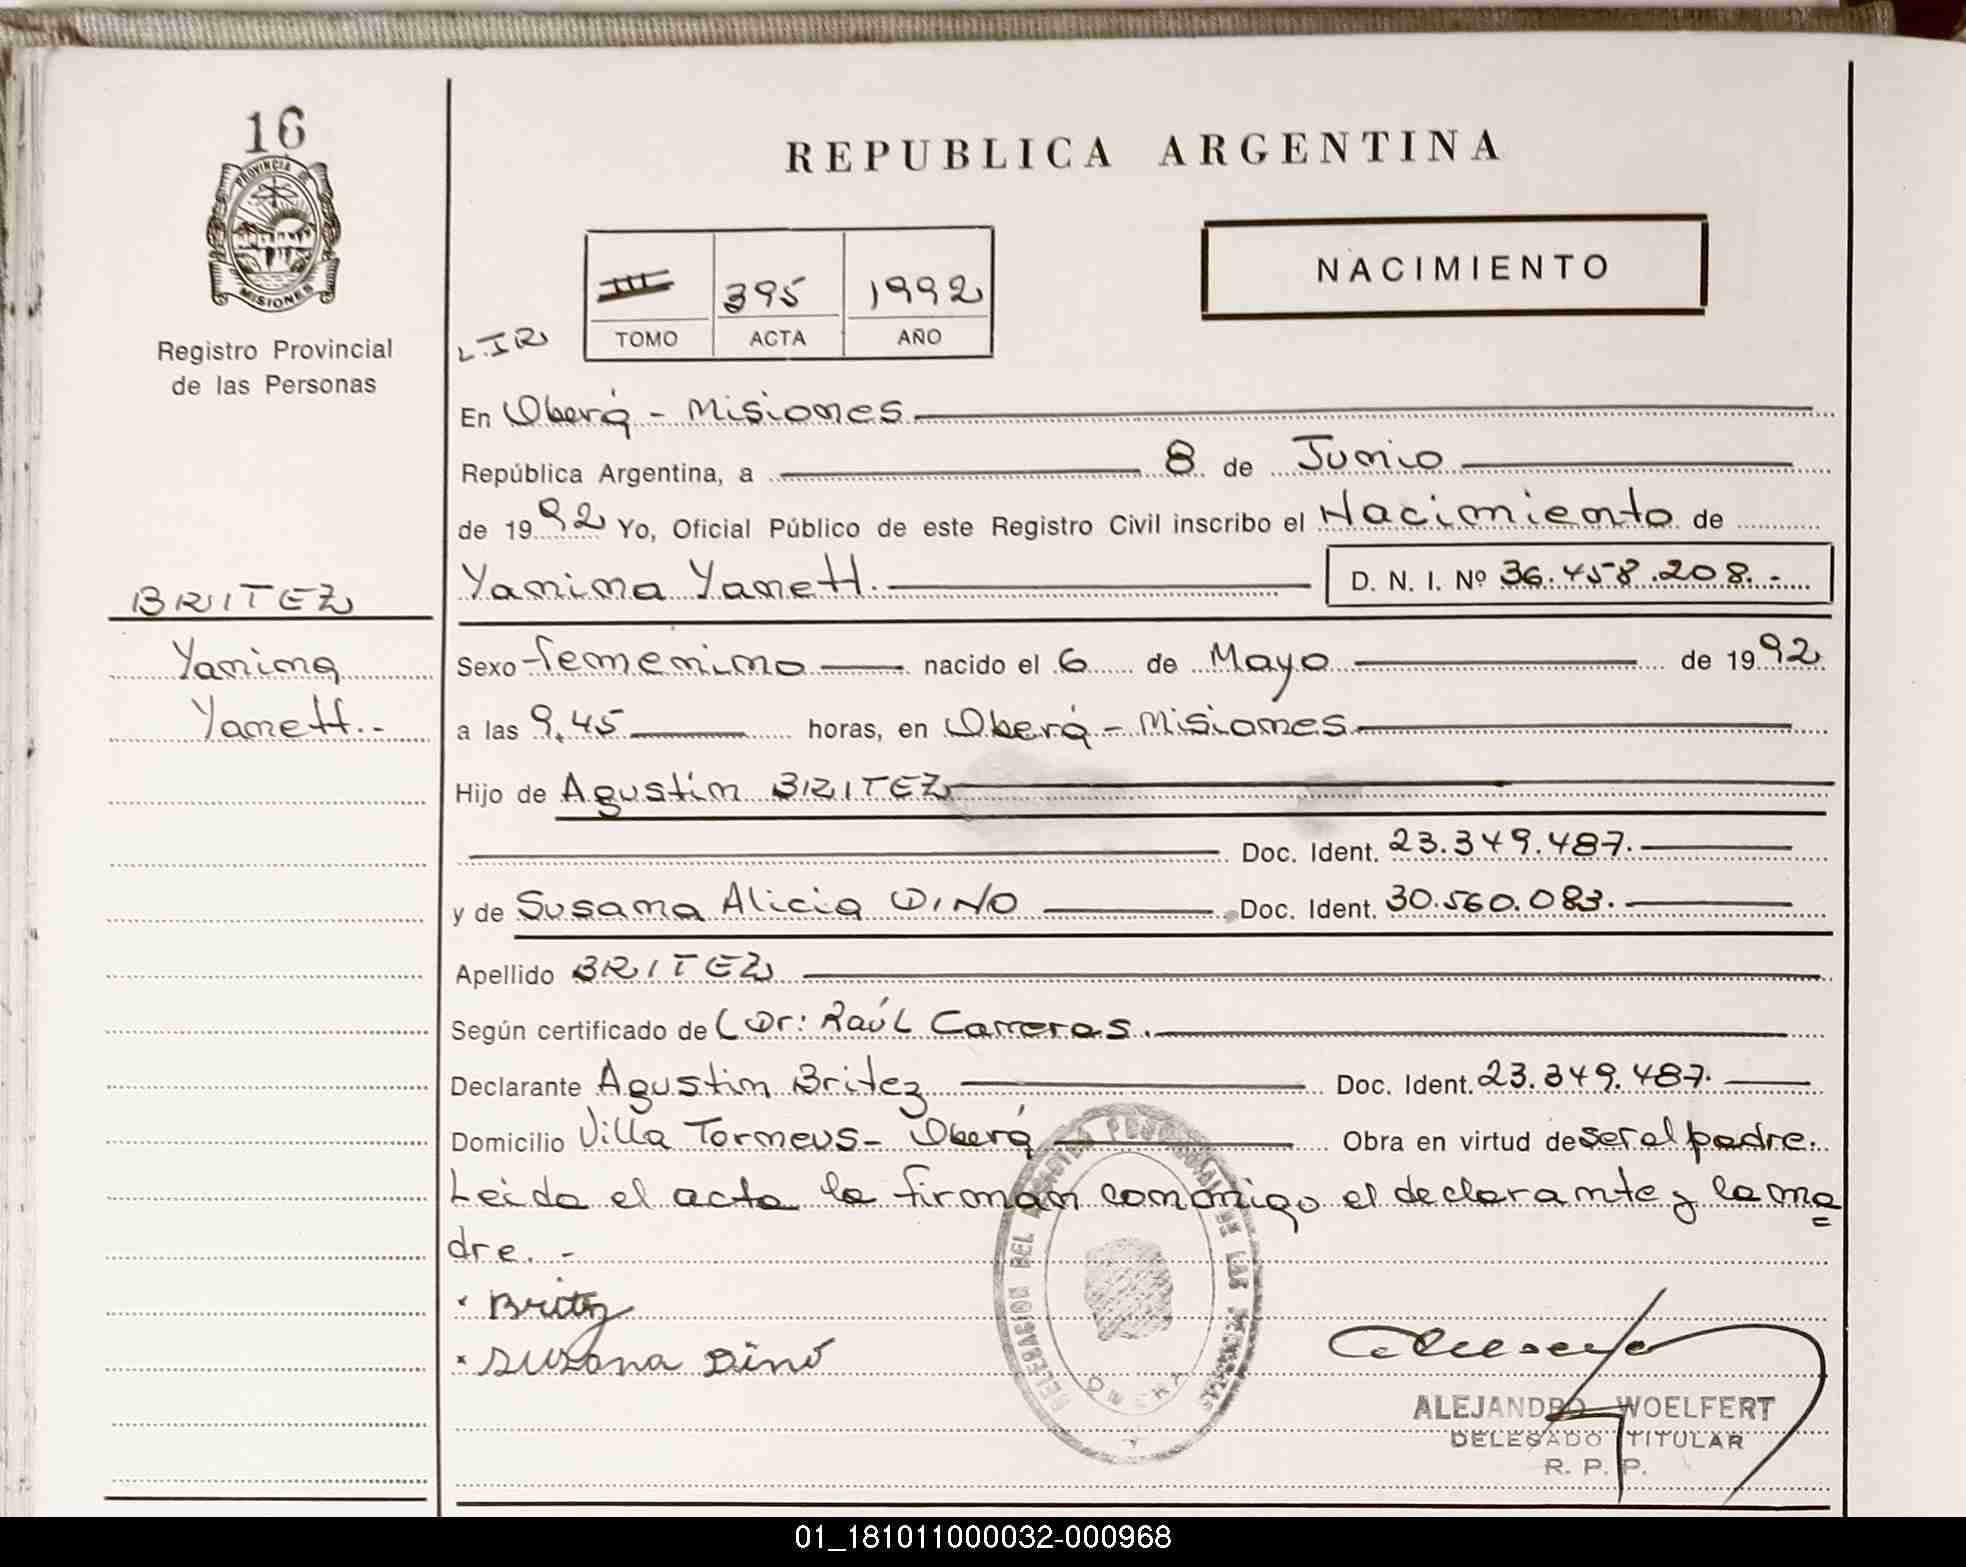 16
PROVINCIA DE
MISIONES
Registro Provincial
de las Personas
REPUBLICA ARGENTINA
NACIMIENTO
III 395 1992
TOMO ACTA AÑO
En Oberá - Misiones
República Argentina, a 8 de Junio
de 1992 Yo, Oficial Público de este Registro Civil inscribo el Nacimiento de
Yanina Yanett. D. N. I. Nº 36.458.208.-
BRITEZ
Yanina
Yanett.-
Sexo femenino nacido el 6 de Mayo de 1992
a las 9,45 horas, en Oberá - Misiones
Hijo de Agustín BRITEZ
Doc. Ident. 23.349.487.
y de Susana Alicia DINO Doc. Ident. 30.560.083.
Apellido BRITEZ
Según certificado de Dr: Raúl Carreras.
Declarante Agustin Britez Doc. Ident. 23.349.487.
Domicilio Villa Torneus - Oberá Obra en virtud de ser el padre.
Leida el acta la firman conmigo el declarante y la ma
dre.-
Britez
Susana Dinó
DELEGACION DEL REGISTRO PROVINCIAL DE LAS PERSONAS
ALEJANDRO WOELFERT
DELEGADO TITULAR
R. P. P.
01_181011000032-000968